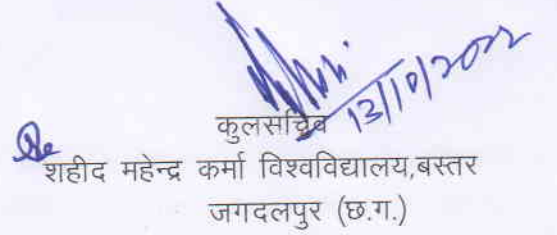 13/10/2022
कुलसचिव
शहीद महेन्द्र कर्मा विश्वविद्यालय,बस्तर
जगदलपुर (छ.ग.)